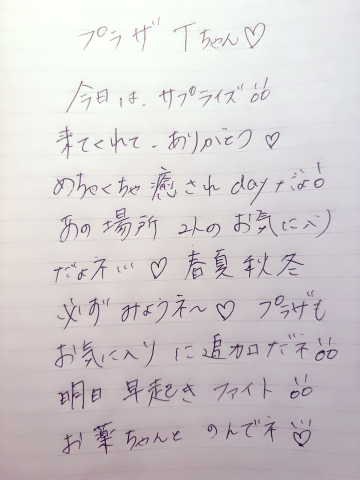 プラザ Tちゃん♡
今日は、サプライズ!!
来てくれて、ありがとう♡
めちゃくちゃ癒され dayだよ!
あの場所 2人のお気に入り
だよネ… ♡ 春夏秋冬
必ず みようネ〜♡ プラザも
お気に入りに追加だネ!!
明日 早起き ファイト!!
お薬ちゃんと のんでネ♡